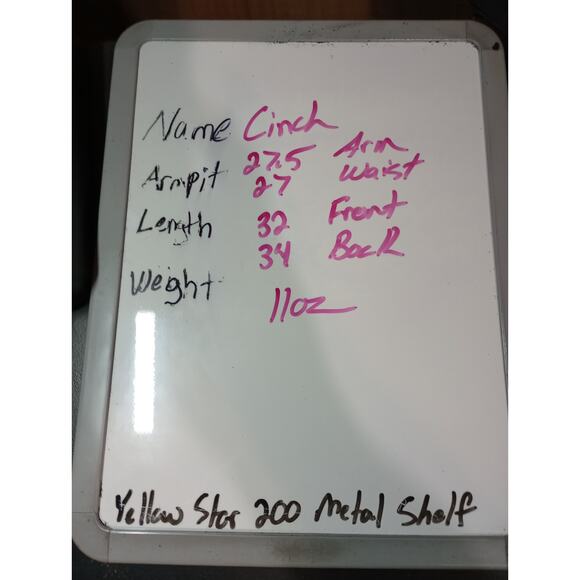 Name Cinch
27.5 Arm
Armpit 27 Waist
Length 32 Front
34 Back
Weight 11oz
Yellow Star 200 Metal Shelf